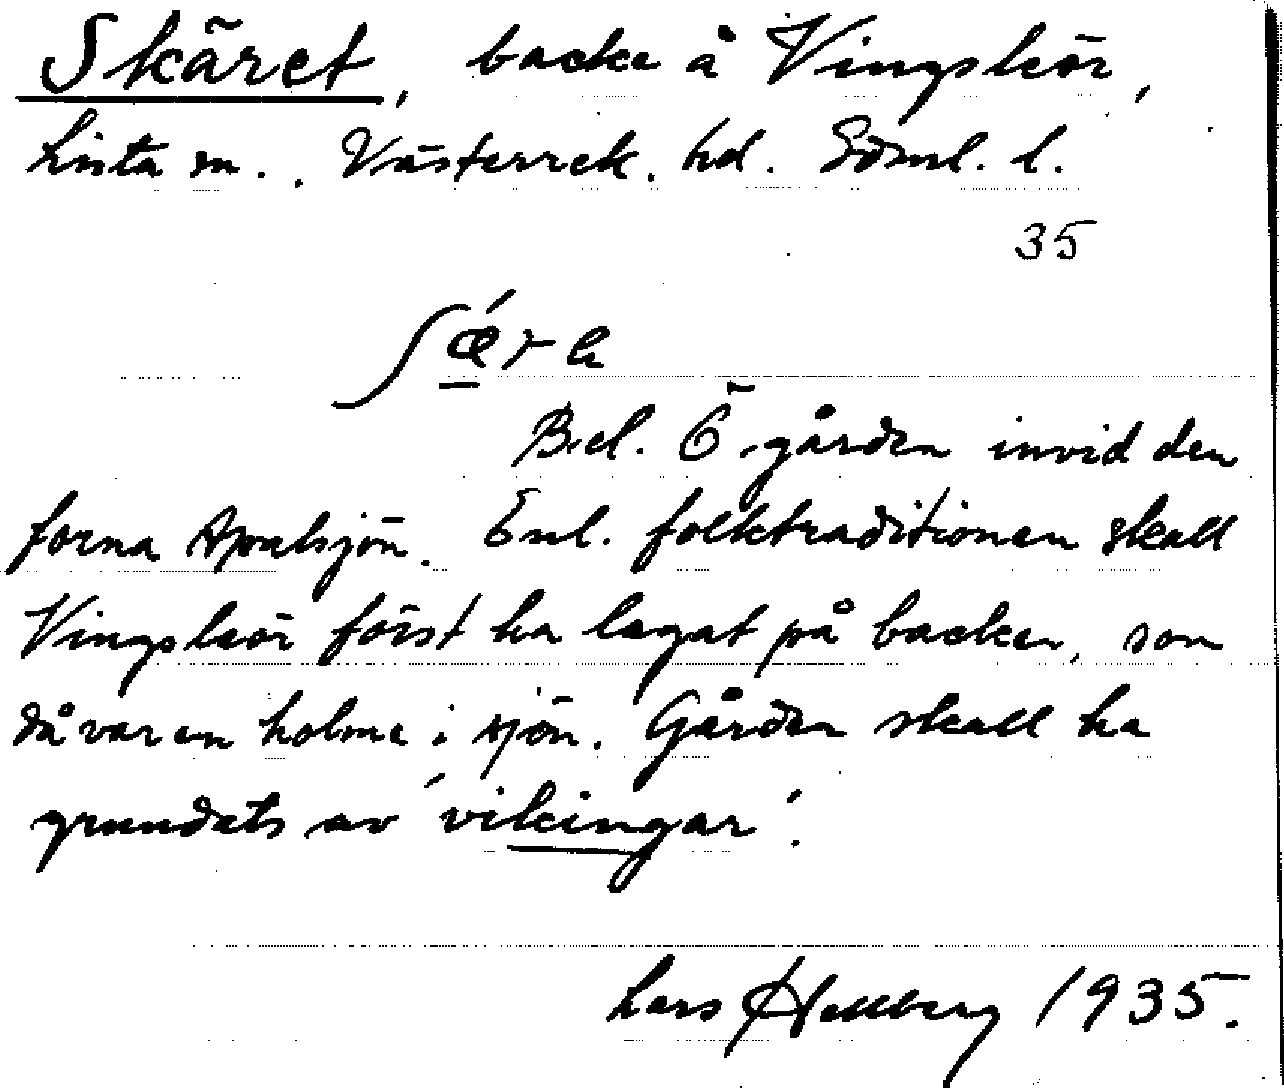 Skäret, backe å Vingskör,
Lista sn., Västerrek. hd. Söml. l.
35
ʃǽra
Bel. Ö. gården invid den
forna Apalsjön. Enl. folktraditionen skall
Vingskör först ha legat på backen, som
då var en holme i sjön. Gården skall ha
grundats av 'vikingar'.
Lars Hellberg 1935.